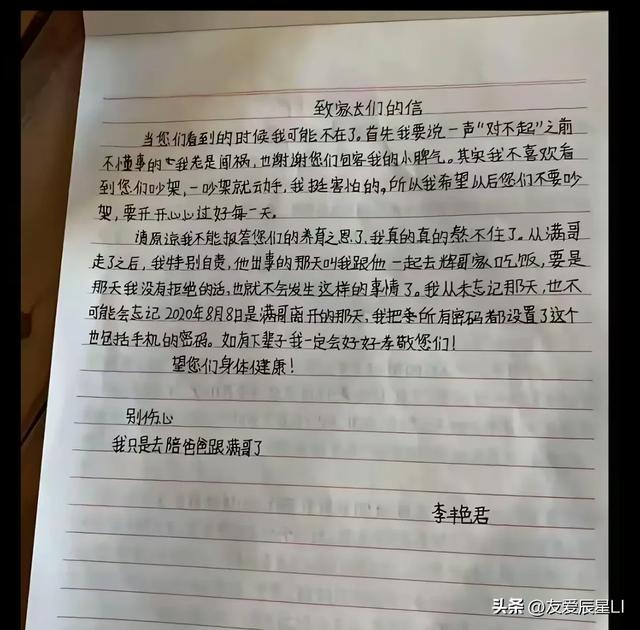 致家长们的信
当您们看到的时候我可能不在了。首先我要说一声“对不起”之前
不懂事的我老是闯祸,也谢谢您们包容我的小脾气。其实我不喜欢看
到您们吵架,一吵架就动手,我挺害怕的,所以我希望以后您们不要吵
架,要开开心心过好每一天。
请原谅我不能报答您们的养育之恩了,我真的真的熬不住了。从满哥
走了之后,我特别自责,他出事的那天叫我跟他一起去辉哥家吃饭,要是
那天我没有拒绝的话,也就不会发生这样的事情了。我从未忘记那天,也不
可能会忘记2020年8月8日是满哥离开的那天,我把所有密码都设置了这个
包括手机的密码。如有下辈子我一定会好好孝敬您们!
望您们身体健康!
别伤心
我只是去陪爸爸跟满哥了
李艳君
头条 @友爱辰星LI